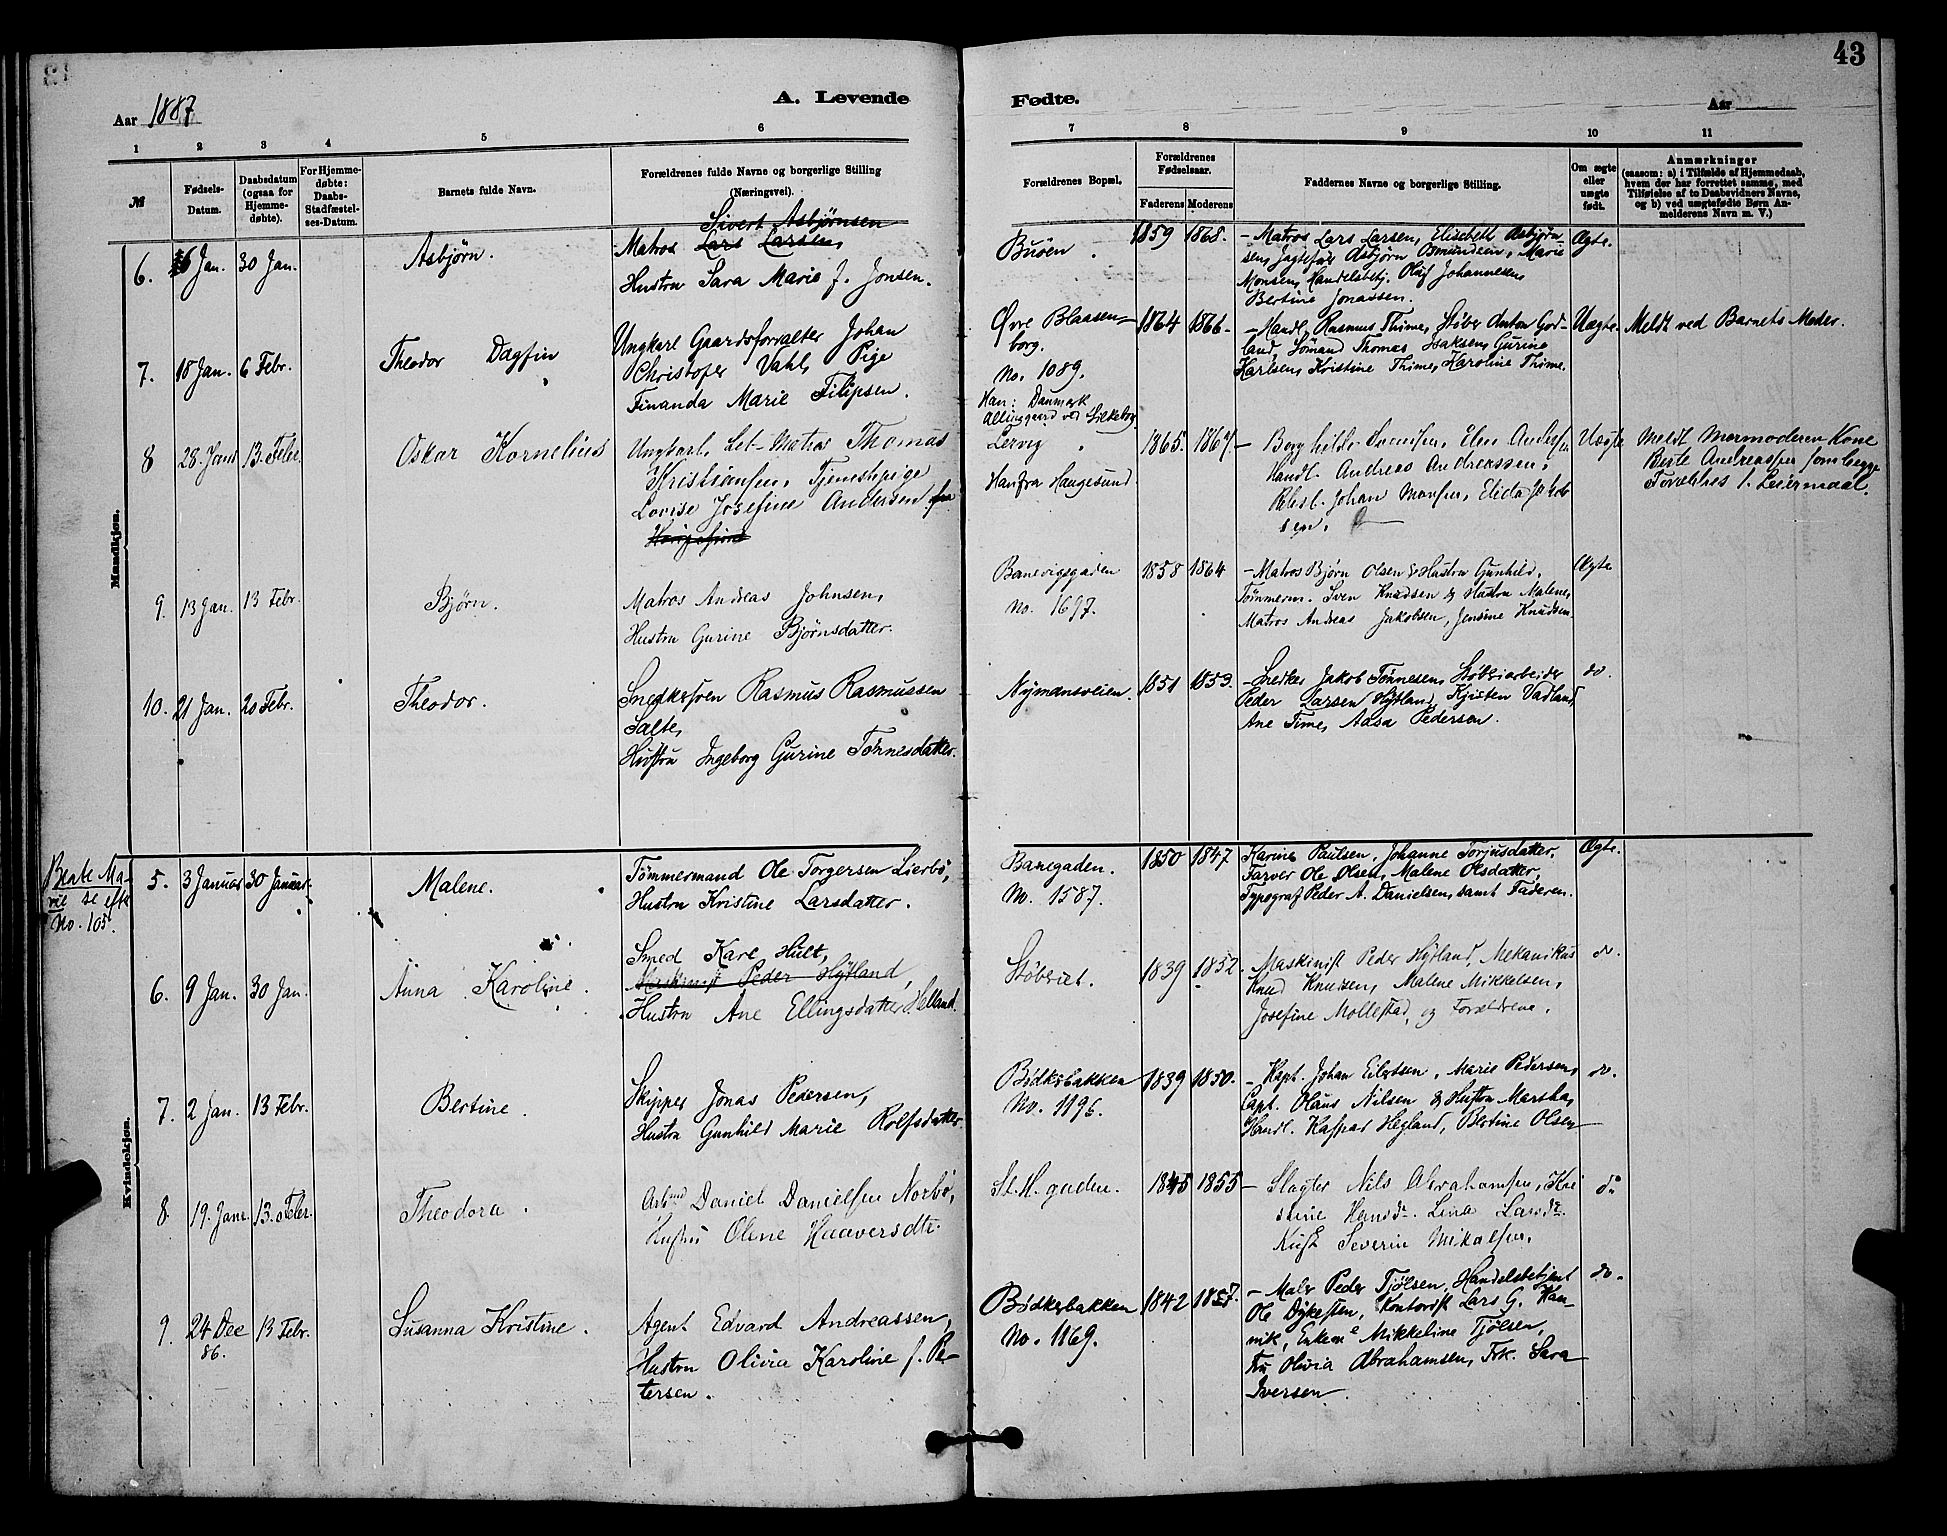 43
Aar 1887
A. Levende
Fødte.
Aar
1 2 3 4 5 6 7 8 9 10 11
№
Fødsels-Datum.
Daabsdatum (ogsaa for Hjemmedøbte).
For Hjemmedøbte: Daabs-Stadfæstelses-Datum.
Barnets fulde Navn.
Forældrenes fulde Navne og borgerlige Stilling (Næringsvei).
Forældrenes Bopæl.
Forældrenes Fødselsaar.
Faderens Moderens
Faddernes Navne og borgerlige Stilling.
Om ægte eller uægte født.
Anmærkninger
(saasom: a) i Tilfælde af Hjemmedaab, hvem der har forrettet samme, med Tilføielse af to Daabsvidners Navne, og b) ved uægtefødte Børn Anmelderens Navn m. V.)
Mandkjøn.
6. 26 Jan. 30 Jan.
Asbjørn.
Sivert Asbjørnsen
Matros Lars Larsen,
Hustru Sara Marie f. Jonsen.
Buøen
1859 1868.
Matros Lars Larsen, Elisabeth Asbjørn-
sen, Jagtefør Asbjørn Osmundsen, Marie
Monsen, Handelsbetj. Oluf Johannesen,
Bertine Jonassen.
Ægte.
7. 18 Jan. 6 Febr.
Theodor Dagfin
Ungkarl Gaardsforvalter Johan
Christofer Vahl, Pige
Finanda Marie Filipsen.
Øvre Blaasen-
borg.
No. 1089.
Han: Danmark
Allinggaard ved Silkeborg
1864 1866.
Handl. Rasmus Thime, Støber Anton God-
land, Sømand Thomas Isaksen, Gurine
Karlsen, Kristine Thime, Karoline Thime.
Uægte.
Meldt ved Barnets Moder.
8 28. Janr 13. Febr.
Oskar Kornelius
Ungkarl. Let-Matros Thomas
Kristiansen, Tjenestepige
Lovise Josefine Andersen fra
Haugesund
Lervig
Han fra Haugesund
1865. 1867.
Borghilde Svensen, Elen Andersen
Handl. Andreas Andreassen,
Johan Monsen, Elida Jakob-
sen.
Uægte
Meldt Mormoderen Kone
Berte Andreassen som begge
Forældres 1. Leiermaal.
9. 13 Jan. 13 Febr.
Bjørn.
Matros Andreas Johnsen,
Hustru Gurine Bjørnsdatter.
Banevigsgaden
No. 1697.
1858 1864
Matros Bjørn Olsen & Hustru Gunhild,
Tømmerm. Sven Knudsen & Hustru Malene,
Matros Andreas Jakobsen, Jensine Knudsen.
Ægte
10. 21 Jan. 20 Febr.
Theodor.
Snedkersven Rasmus Rasmussen
Salte,
Hustru Ingeborg Gurine Tønnesdatter.
Nymansveien.
1851 1853.
Snedker Jakob Tønnesen, Støberiarbeider
Peder Larsen Hytland, Kjisten Vadland,
Ane Time, Adsa Pedersen.
do.
Kvindekjøn.
Bente Ma-
rie se efter
No. 105.
5. 3 Januar 30 Januar.
Malene.
Tømmermand Ole Torgersen Lierbø,
Hustru Kristine Larsdatter.
Banegaden.
No. 1587.
1850 1847
Karine Paulsen, Johanne Torjusdatter,
Farver Ole Olsen, Malene Olsdatter,
Typograf Peder A. Danielsen, samt Faderen.
Ægte.
6. 9 Jan. 30 Jan.
Anna Karoline.
Smed Karl Hult,
Maskinist Peder Hytland,
Hustru Ane Ellingsdatter Helland.
Støberiet.
1839 1852.
Maskinist Peder Hytland, Mekanikus
Knud Knudsen, Malene Mikkelsen,
Josefine Mollestad, og Forældrene.
do.
7. 2 Jan. 13 Febr.
Bertine.
Skipper Jonas Pedersen,
Hustru Gunhild Marie Rolfsdatter.
Bødkerbakken
No. 1196.
1839 1850.
Kapt. Johan Eilertsen, Marie Pedersen,
Capt. Olaus Nilsen & Hustru Martha,
Handl. Kaspar Hegland, Bertine Olsen
do.
8. 19. Janr. 13. Febr.
Theodora.
Arbmd Daniel Danielsen Norbø,
Hustru Olene Haaversdtr.
St. H. gaden.
1845 1855
Slagter Nils Abrahamsen, Kri-
stine Hansdr. Lina Larsdr.
Severin Mikalsen.
do
9. 24 Dec 86. 13 Febr.
Susanna Kristine.
Agent Edvard Andreassen,
Hustru Olivia Karoline f. Pe-
tersen.
Bødkerbakken
No. 1169.
1842 1857.
Maler Peder Tjølsen, Handelsbetjent
Ole Dykesten, Kontorist Lars G. Han-
nik, Enkene Mikkeline Tjølsen,
Fru Olivia Abrahamsen, Frk. Sara
Iversen.
do.